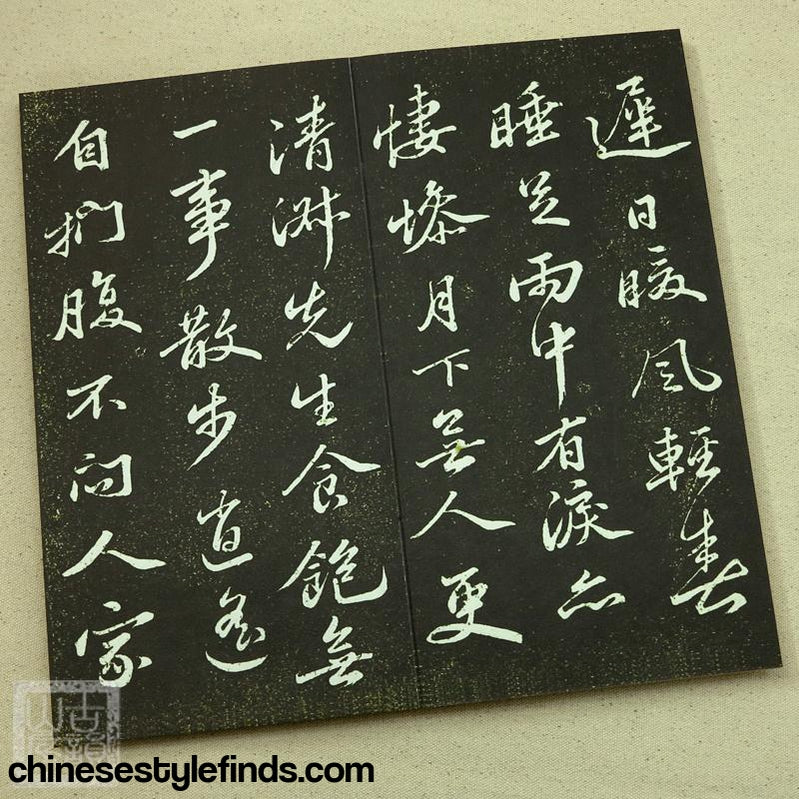 遲日暖風輕春
睡足雨中有淚亦
悽慘月下無人更
清淑先生食飽無
一事散步逍遙
自捫腹不問人家
chinesestylefinds.com